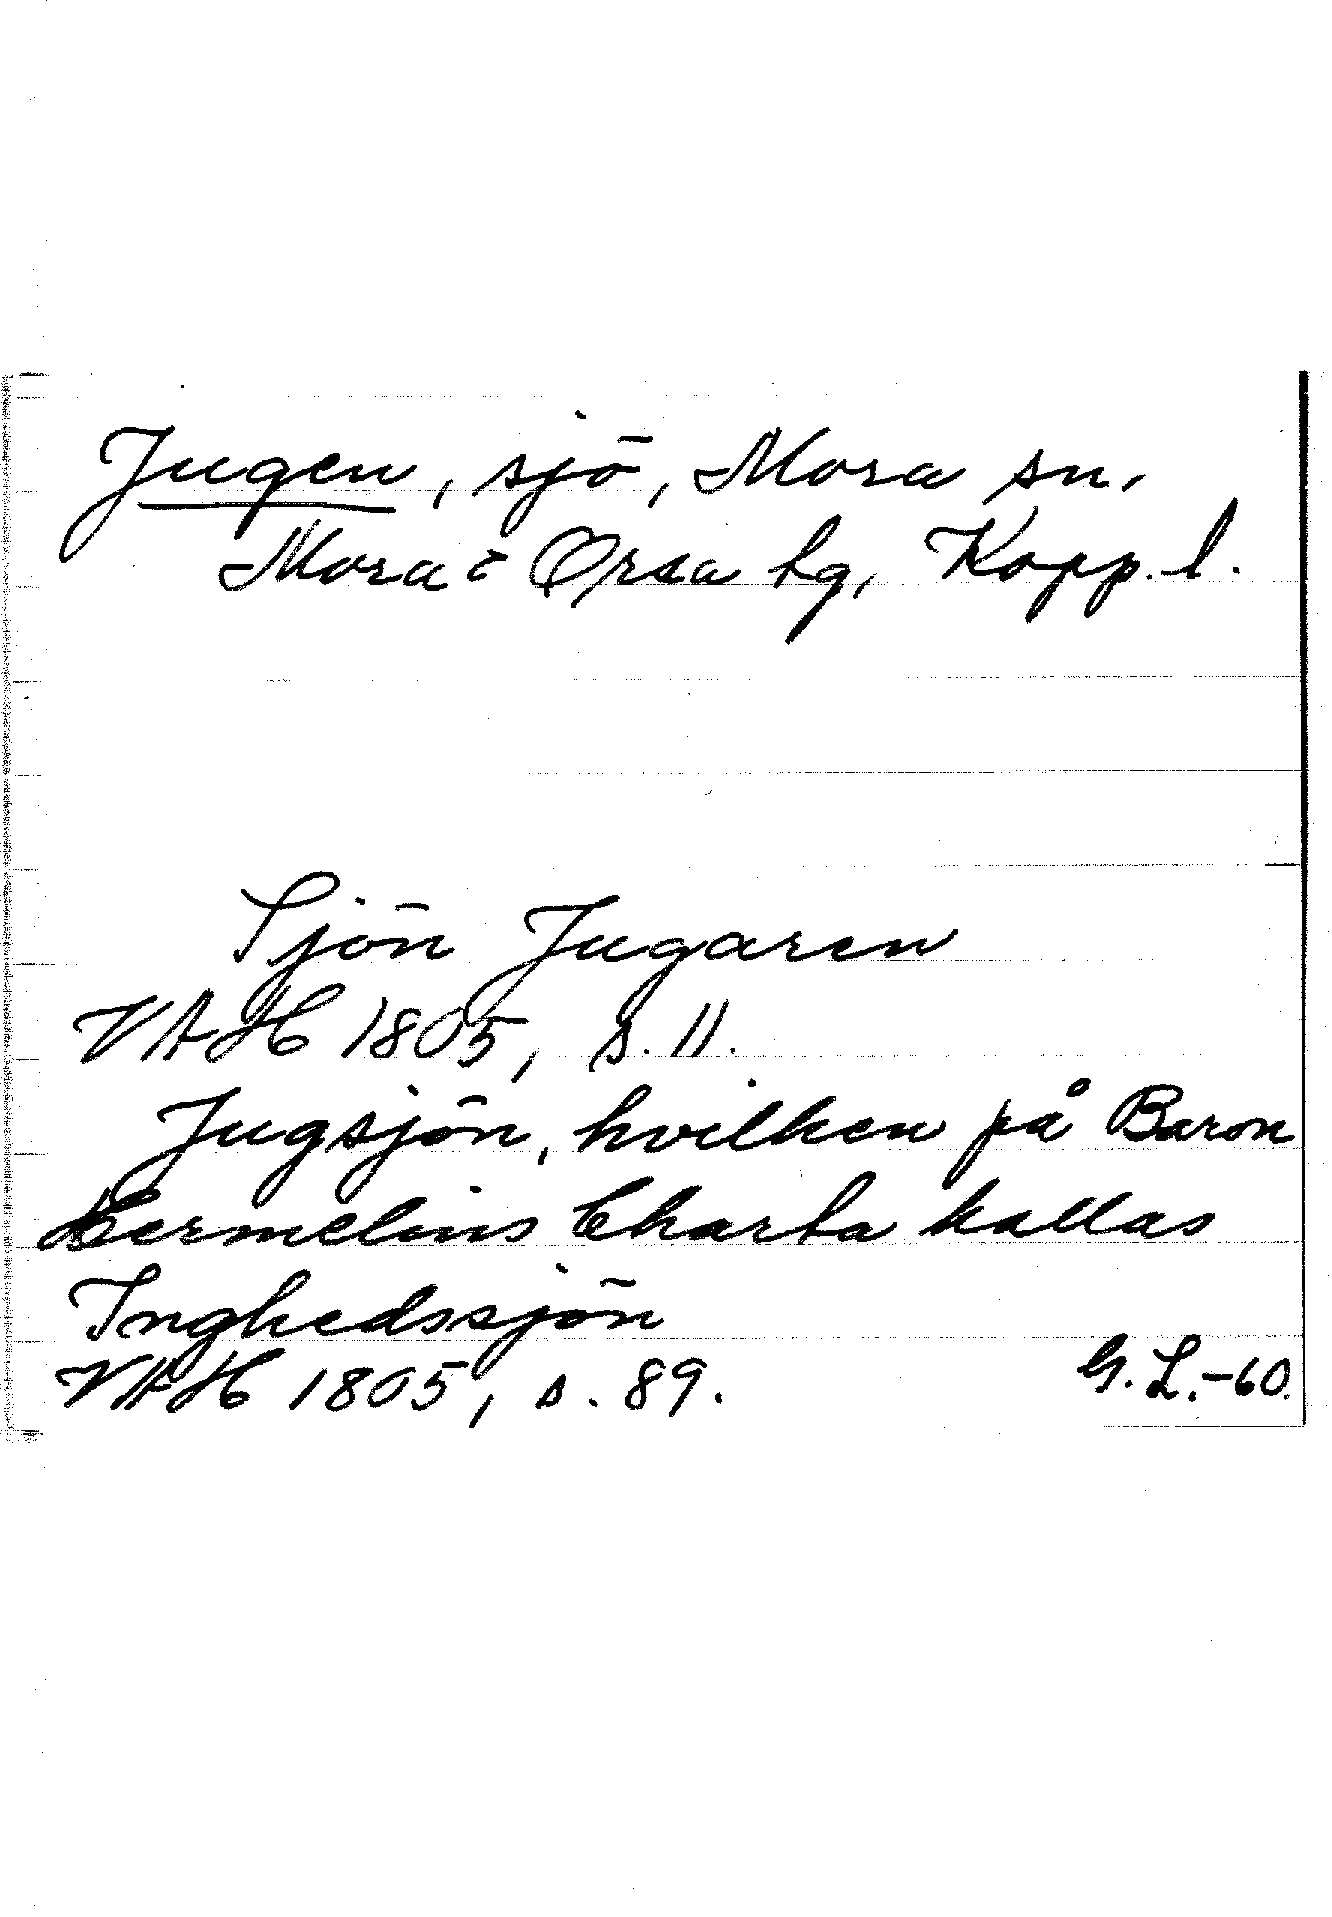 Jugen, sjö, Mora sn,
Mora o Orsa tg, Kopp. l.
Sjön Jugaren
VAH 1805, s. 11.
Jugsjön, hvilken på Baron
Hermelins Charta kallas
Inghedssjön
VAH 1805, s. 89.
G. L. -60.